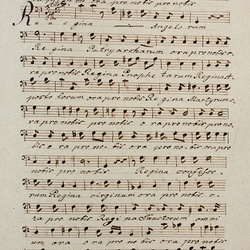 ora pro nobis
Regina Angelorum
Regina Patryarcharum ora pro nobis o-
ra pro nobis Regina Prophetarum Regina A-
postolorum ora pro nobis Regina Martyrum o-
ra pro nobis pro nobis ora pro no-
bis o ra pro nobis pro no-bis ora pro
nobis pro nobis Regina Confesso-
rum Regina virginum ora pro nobis o-
ra pro nobis Regina Sanctorum omni
um ora o ra pro nobis ora pro nobis